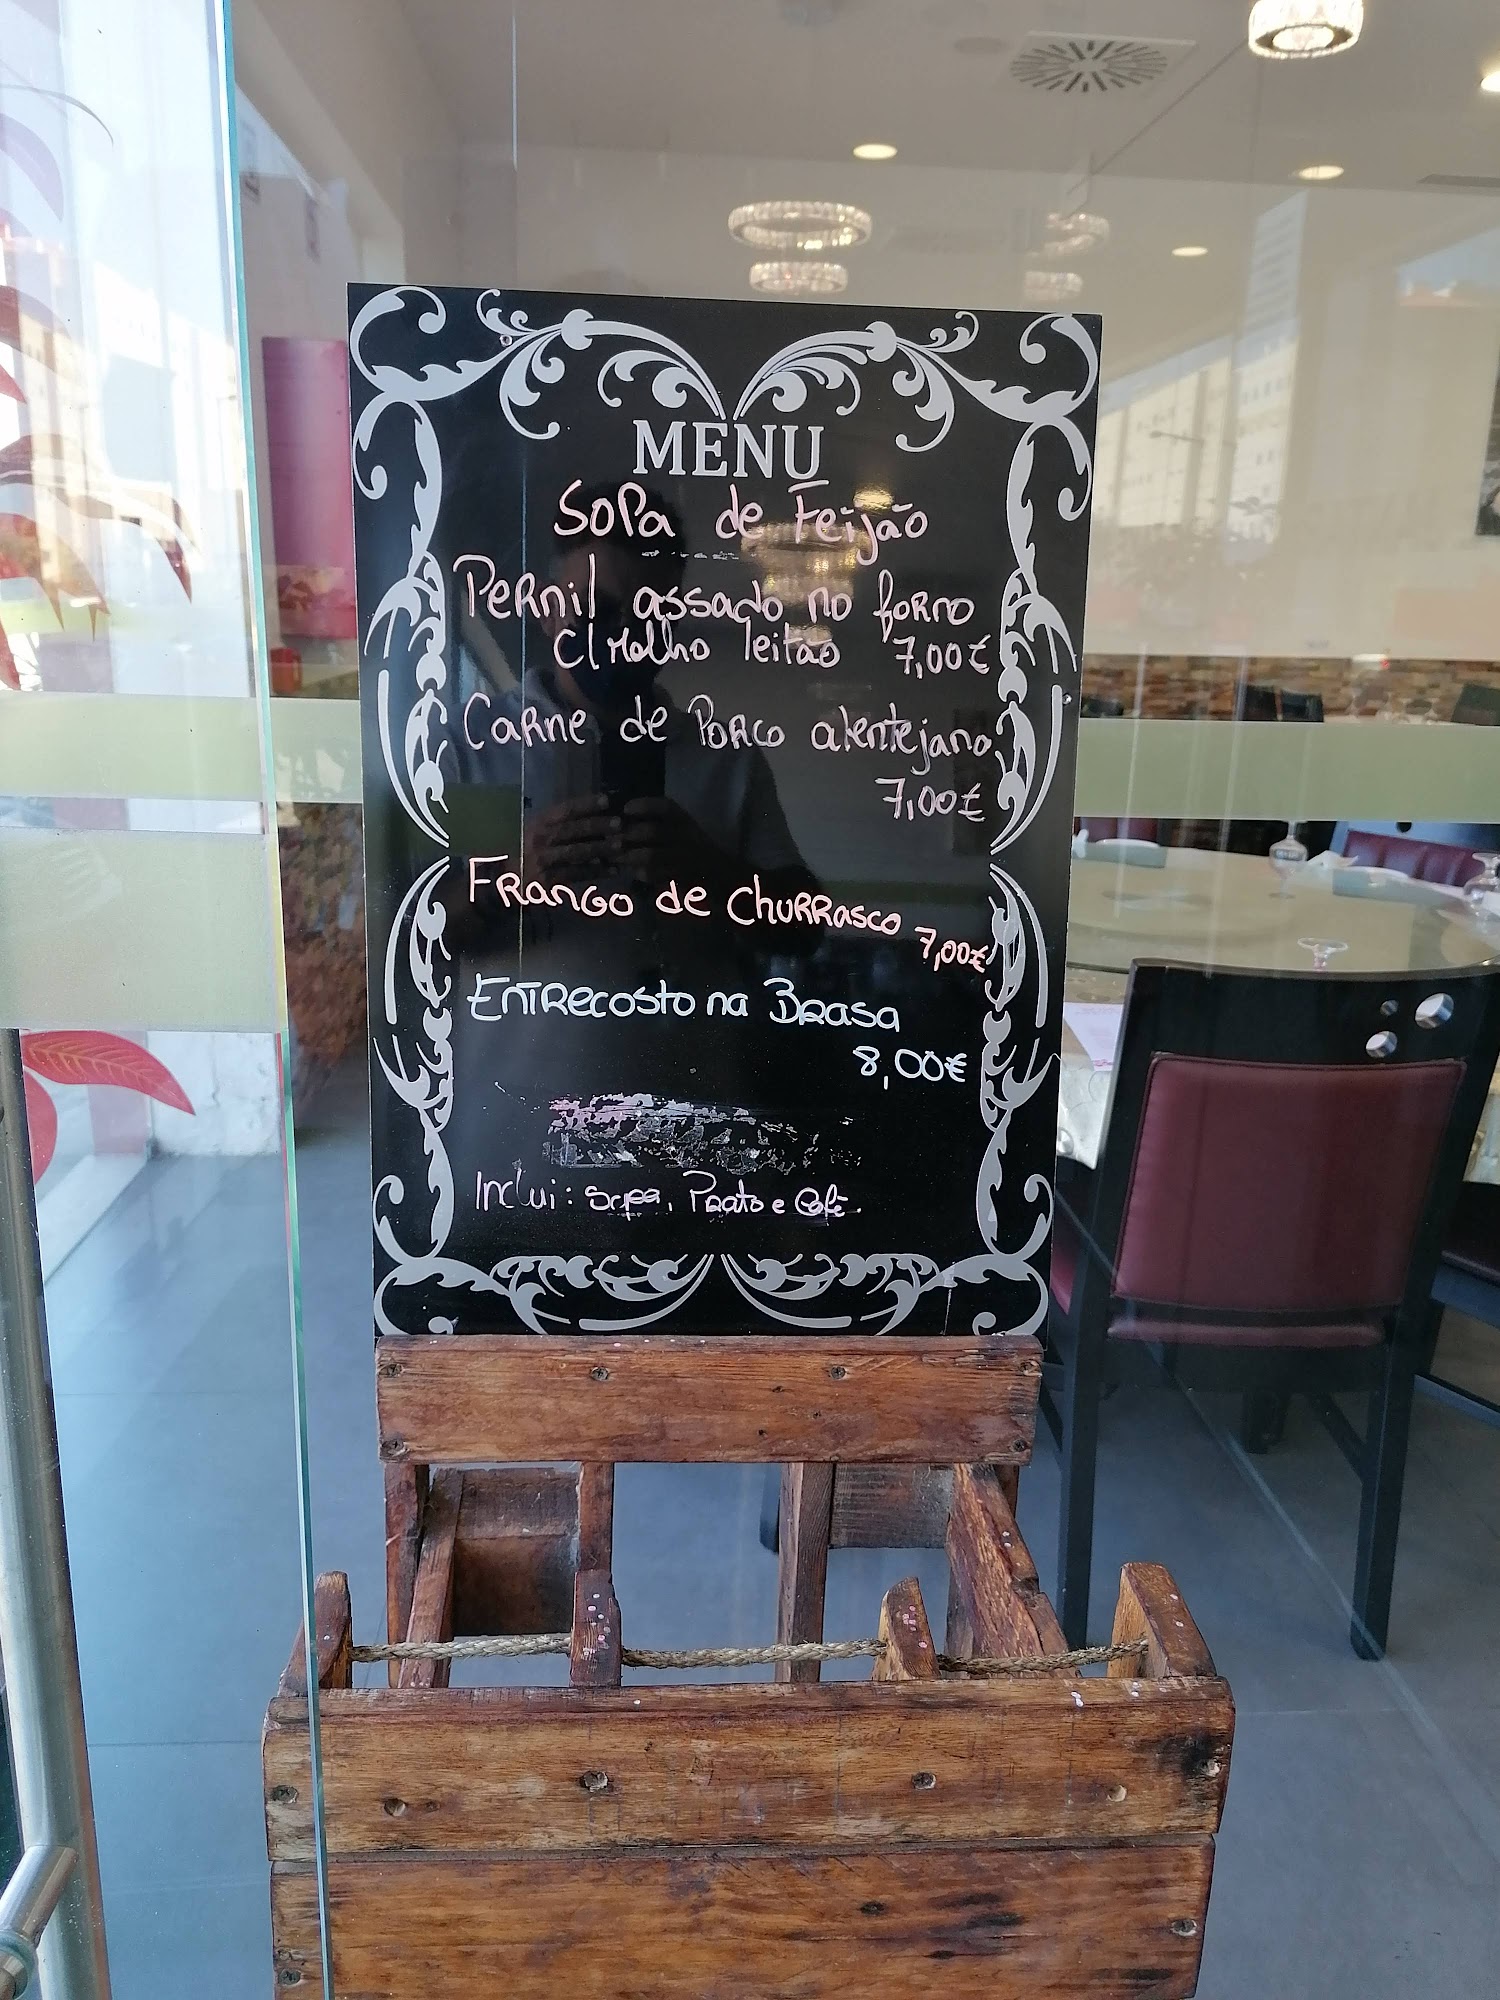 MENU
Sopa de Feijão
Pernil assado no forno
c/ molho leitão 7,00€
Carne de Porco alentejano
7,00€
Frango de Churrasco
7,00€
Entrecosto na Brasa
8,00€
Inclui: Sopa, Prato e Café.